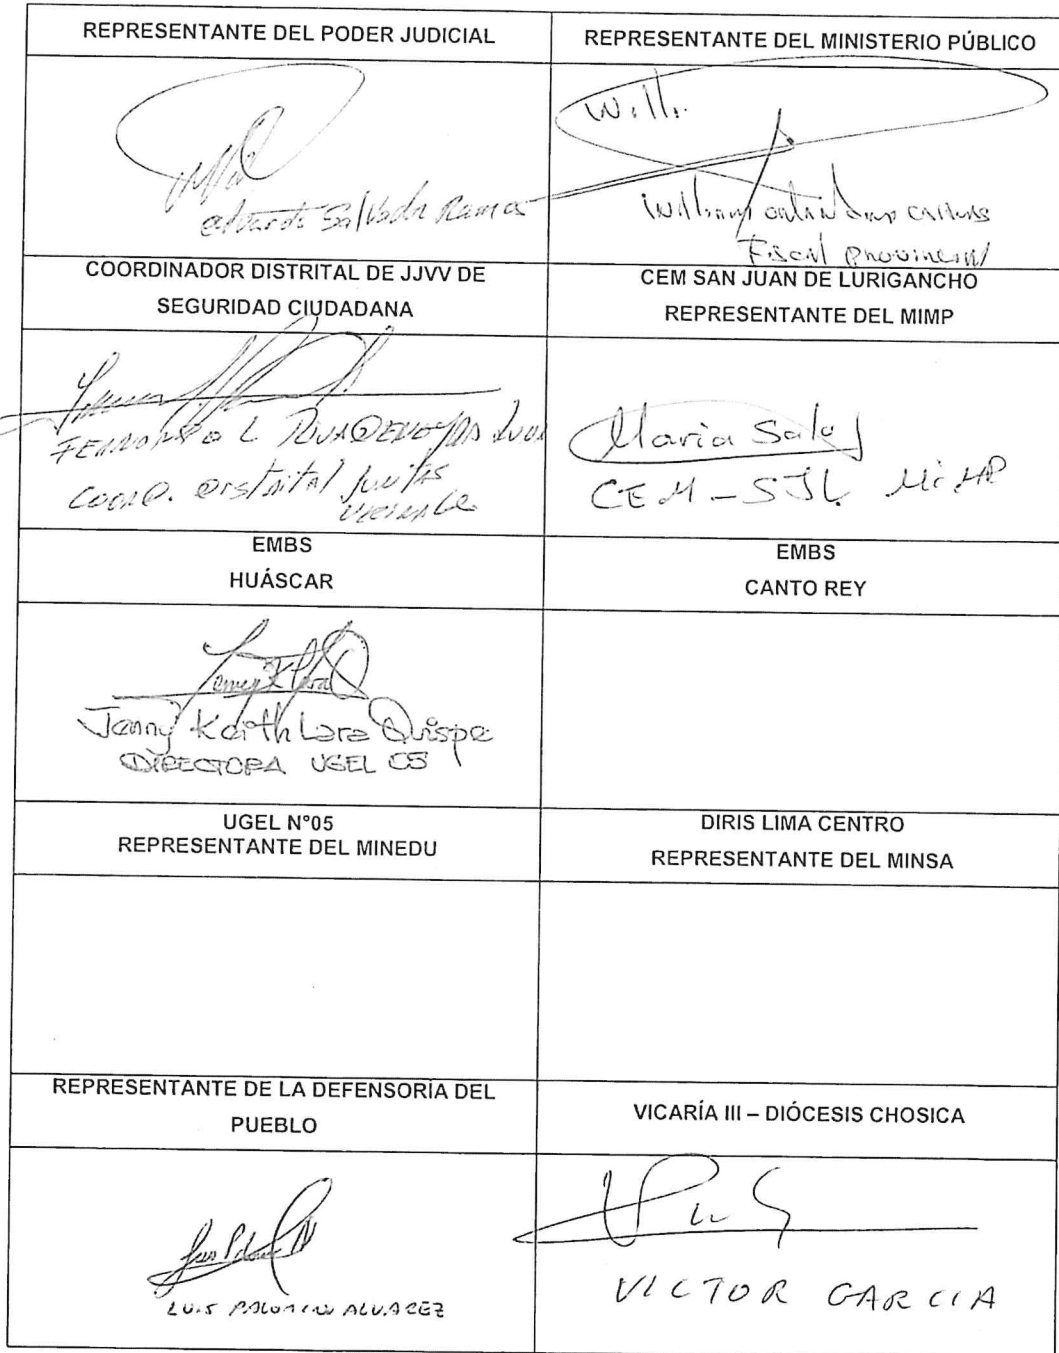 REPRESENTANTE DEL PODER JUDICIAL
REPRESENTANTE DEL MINISTERIO PÚBLICO
Eduardo Salvador Ramos
Willi.
William
Fiscal Provincial
COORDINADOR DISTRITAL DE JJVV DE
SEGURIDAD CIUDADANA
CEM SAN JUAN DE LURIGANCHO
REPRESENTANTE DEL MIMP
FERNANDO L
COORD. Distrital Juntas
Vecinales
Maria Salo
CEM-SJL MiMP
EMBS
HUÁSCAR
EMBS
CANTO REY
Jenny Keith Lara Quispe
DIRECTORA UGEL 05
UGEL N°05
REPRESENTANTE DEL MINEDU
DIRIS LIMA CENTRO
REPRESENTANTE DEL MINSA
REPRESENTANTE DE LA DEFENSORÍA DEL
PUEBLO
VICARÍA III – DIÓCESIS CHOSICA
LUIS PALOMINO ALVAREZ
VICTOR GARCIA